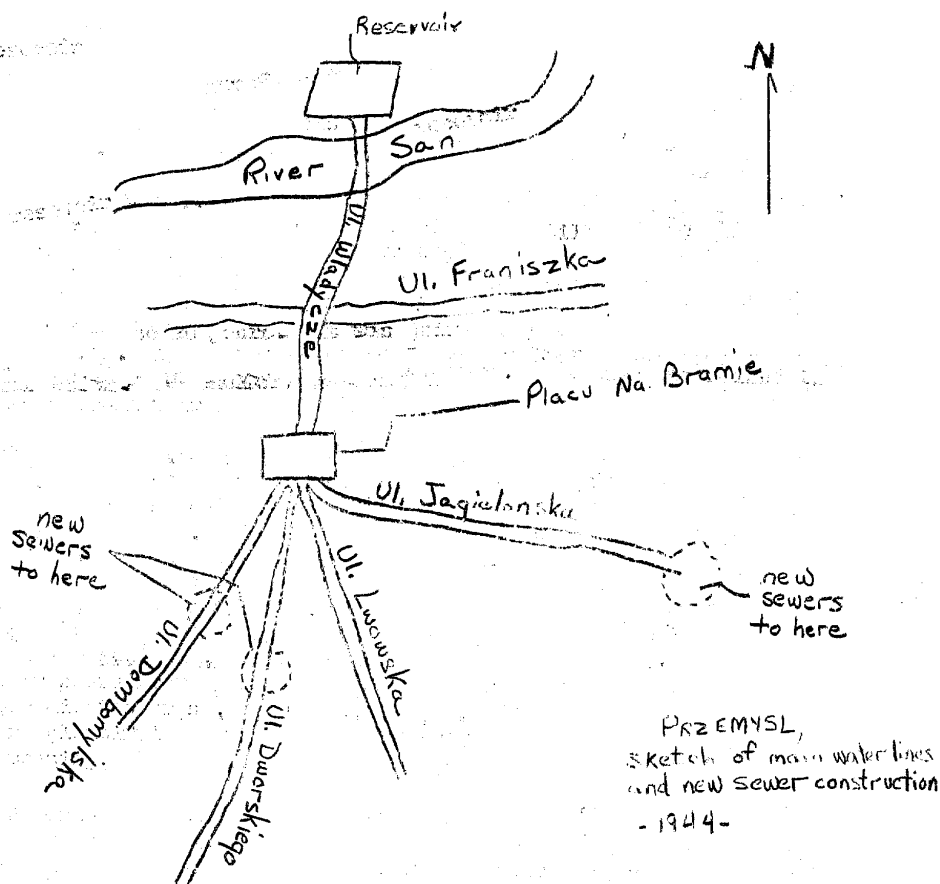 Reservoir
N
River San
Ul. Wladycze
Ul. Franiszka
Placu Na Bramie
Ul. Jagielonska
new
sewers
to here
new
sewers
to here
Ul. Lwowska
Ul. Dombomylska
Ul. Dworskiego
PRZEMYSL,
sketch of main water lines
and new sewer construction
- 1944 -